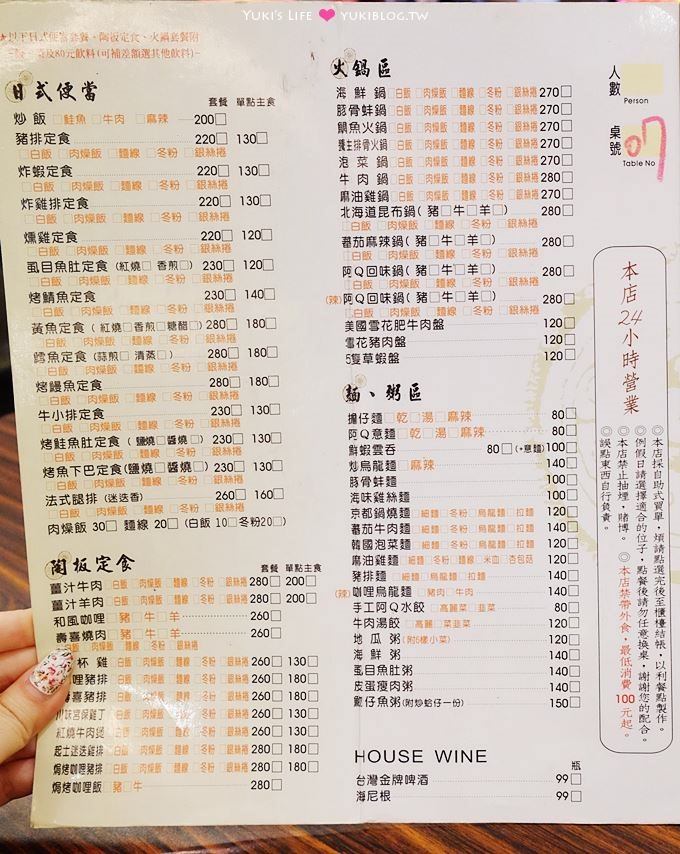 YUKI'S LIFE ❤ YUKIBLOG.TW
★以下日式便當套餐、陶板定食、火鍋套餐附
80元飲料(可補差額選其他飲料)~
日式便當
套餐 單點主食
炒飯 □鮭魚 □牛肉 □麻辣 200□
豬排定食 220□ 130□
□白飯 □肉燥飯 □麵線 □冬粉 □銀絲捲
炸蝦定食 220□ 130□
□白飯 □肉燥飯 □麵線 □冬粉 □銀絲捲
炸雞排定食 220□ 130□
□白飯 □肉燥飯 □麵線 □冬粉 □銀絲捲
燻雞定食 220□ 120□
□白飯 □肉燥飯 □麵線 □冬粉 □銀絲捲
虱目魚肚定食(紅燒□ 香煎□) 230□ 120□
□白飯 □肉燥飯 □麵線 □冬粉 □銀絲捲
烤鯖魚定食 230□ 140□
□白飯 □肉燥飯 □麵線 □冬粉 □銀絲捲
黃魚定食(紅燒□香煎□糖醋□) 280□ 180□
□白飯 □肉燥飯 □麵線 □冬粉 □銀絲捲
鱈魚定食(蒜煎□清蒸□) 280□ 180□
□白飯 □肉燥飯 □麵線 □冬粉 □銀絲捲
烤鰻魚定食 280□ 180□
□白飯 □肉燥飯 □麵線 □冬粉 □銀絲捲
牛小排定食 230□ 130□
□白飯 □肉燥飯 □麵線 □冬粉 □銀絲捲
烤鮭魚肚定食(鹽燒□醬燒□) 230□ 130□
□白飯 □肉燥飯 □麵線 □冬粉 □銀絲捲
烤魚下巴定食(鹽燒□醬燒□) 230□ 130□
□白飯 □肉燥飯 □麵線 □冬粉 □銀絲捲
法式腿排(迷迭香) 260□ 160□
□白飯 □肉燥飯 □麵線 □冬粉 □銀絲捲
肉燥飯 30□ 麵線 20□ (白飯 10□冬粉20□)
陶板定食
套餐 單點主食
薑汁牛肉 □白飯 □肉燥飯 □麵線 □冬粉 □銀絲捲 280□ 200□
薑汁羊肉 □白飯 □肉燥飯 □麵線 □冬粉 □銀絲捲 280□ 200□
和風咖哩 □豬□牛□羊 260□
壽喜燒肉 □豬□牛□羊 260□
杯雞 □白飯 □肉燥飯 □麵線 □冬粉 □銀絲捲 260□ 130□
哩豬排 □白飯 □肉燥飯 □麵線 □冬粉 □銀絲捲 260□ 130□
喜豬排 □白飯 □肉燥飯 □麵線 □冬粉 □銀絲捲 260□ 130□
川味宮保雞丁 □白飯 □肉燥飯 □麵線 □冬粉 □銀絲捲 260□ 130□
紅燒牛肉煲 □白飯 □肉燥飯 □麵線 □冬粉 □銀絲捲 260□ 130□
起士迷迭雞排 □白飯 □肉燥飯 □麵線 □冬粉 □銀絲捲 280□ 180□
焗烤咖哩豬排 □白飯 □肉燥飯 □麵線 □冬粉 □銀絲捲 280□ 180□
焗烤咖哩飯 □豬□牛 280□
火鍋區
海鮮鍋 □白飯 □肉燥飯 □麵線 □冬粉 □銀絲捲 270□
豚骨蚌鍋 □白飯 □肉燥飯 □麵線 □冬粉 □銀絲捲 270□
鯛魚火鍋 □白飯 □肉燥飯 □麵線 □冬粉 □銀絲捲 270□
養生排骨火鍋 □白飯 □肉燥飯 □麵線 □冬粉 □銀絲捲 270□
泡菜鍋 □白飯 □肉燥飯 □麵線 □冬粉 □銀絲捲 270□
牛肉鍋 □白飯 □肉燥飯 □麵線 □冬粉 □銀絲捲 280□
麻油雞鍋 □白飯 □肉燥飯 □麵線 □冬粉 □銀絲捲 270□
北海道昆布鍋(豬□牛□羊□) 280□
□白飯 □肉燥飯 □麵線 □冬粉 □銀絲捲
蕃茄麻辣鍋(豬□牛□羊□) 280□
□白飯 □肉燥飯 □麵線 □冬粉 □銀絲捲
阿Q回味鍋(豬□牛□羊□) 280□
□白飯 □肉燥飯 □麵線 □冬粉 □銀絲捲
(辣)阿Q回味鍋(豬□牛□羊□) 280□
□白飯 □肉燥飯 □麵線 □冬粉 □銀絲捲
美國雪花肥牛肉盤 120□
雪花豬肉盤 120□
5隻草蝦盤 120□
麵、粥區
擔仔麵 □乾 □湯 □麻辣 80□
阿Q意麵 □乾 □湯 □麻辣 80□
鮮蝦雲吞 80□(+意麵)100□
炒烏龍麵 □麻辣 140□
豚骨蚌麵 100□
海味雞絲麵 100□
京都鍋燒麵 □細麵 □冬粉 □烏龍麵 □拉麵 120□
蕃茄牛肉麵 □細麵 □冬粉 □烏龍麵 □拉麵 140□
韓國泡菜麵 □細麵 □冬粉 □烏龍麵 □拉麵 120□
麻油雞麵 □細麵 □冬粉 □麵線 □米血 □杏包菇 120□
豬排麵 □細麵 □烏龍麵 □拉麵 140□
(辣)咖哩烏龍麵 □豬肉 □牛肉 140□
手工阿Q水餃 □高麗菜 □韭菜 80□
牛肉湯餃 □高麗菜韭菜 120□
地瓜粥(附6樣小菜) 120□
海鮮粥 140□
虱目魚肚粥 120□
皮蛋瘦肉粥 140□
魩仔魚粥(附炒蛤仔一份) 150□
HOUSE WINE
瓶
台灣金牌啤酒 99□
海尼根 99□
人數
Person
桌號 07
Table No
本店24小時營業
◎本店採自助式買單，煩請點選完後至櫃檯結帳，以利餐點製作。
◎例假日請選擇適合的位子，點餐後請勿任意換桌，謝謝您的配合。
◎本店禁止抽煙，賭博。◎本店禁帶外食，最低消費100元起。
◎誤點東西自行負責。